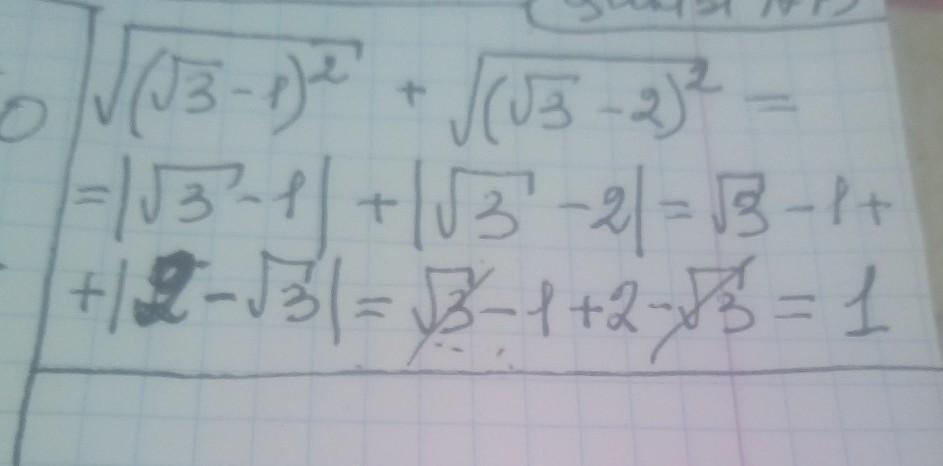 √(√3 - 1)² + √(√3 - 2)² =
= |√3 - 1| + |√3 - 2| = √3 - 1 +
+ |2 - √3| = √3 - 1 + 2 - √3 = 1